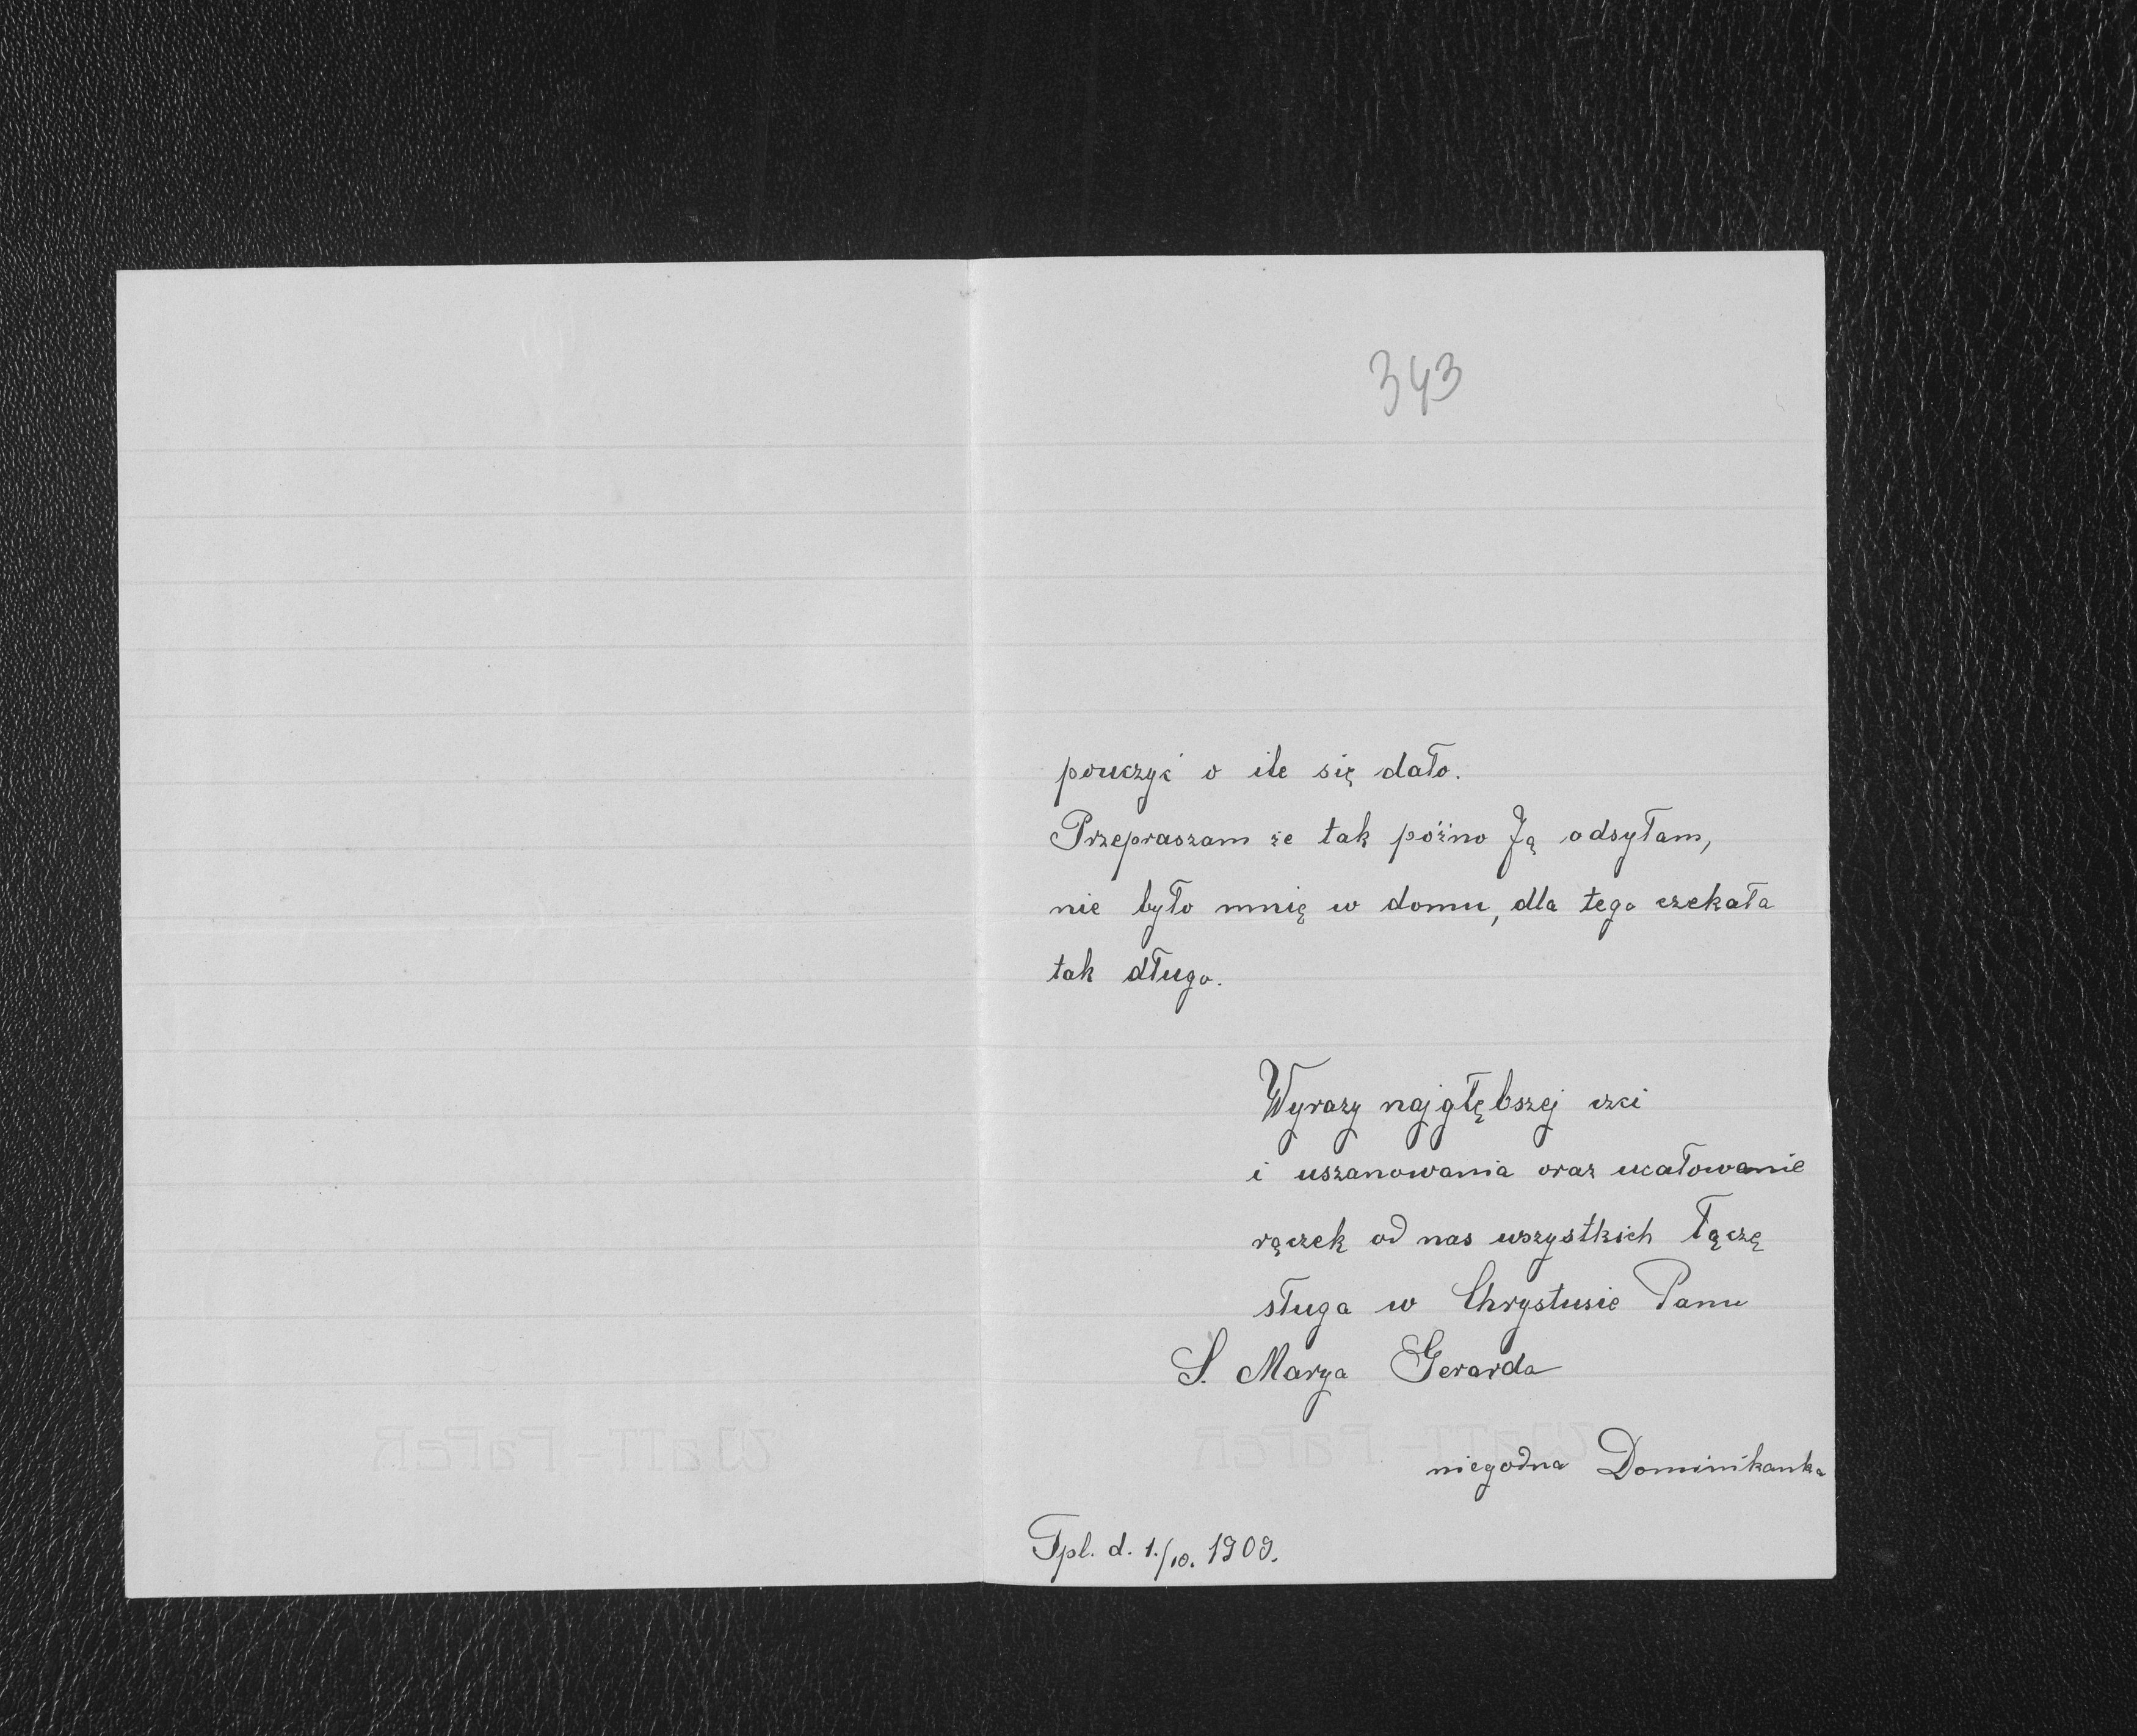 343
pouczyć o ile się dało.
Przepraszam że tak późno Ją odsyłam,
nie było mnię w domu, dla tego czekała
tak długo.
Wyrazy najgłębszej czci
i uszanowania oraz ucałowanie
rączek od nas wszystkich łączę
sługa w Chrystusie Panu
S. Marya Gerarda
niegodna Dominikanka
Tpl. d. 1./10. 1909.